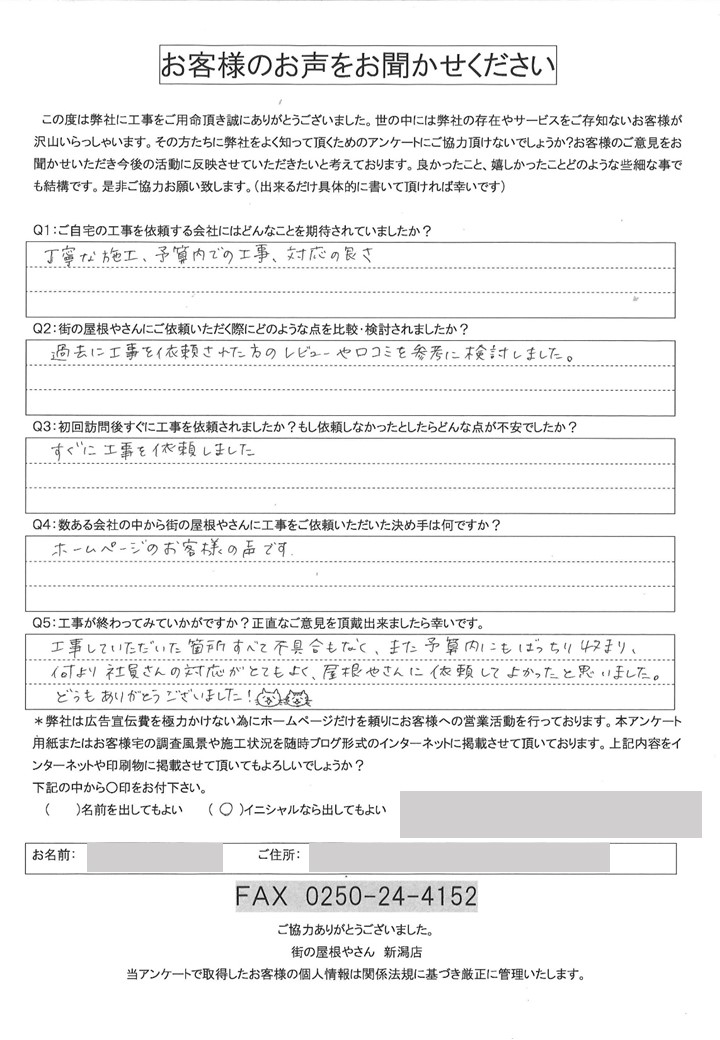 お客様のお声をお聞かせください
この度は弊社に工事をご用命頂き誠にありがとうございました。世の中には弊社の存在やサービスをご存知ないお客様が
沢山いらっしゃいます。その方たちに弊社をよく知って頂くためのアンケートにご協力頂けないでしょうか?お客様のご意見をお
聞かせいただき今後の活動に反映させていただきたいと考えております。良かったこと、嬉しかったことどのような些細な事で
も結構です。是非ご協力お願い致します。(出来るだけ具体的に書いて頂ければ幸いです)
Q1:ご自宅の工事を依頼する会社にはどんなことを期待されていましたか?
丁寧な施工、予算内での工事、対応の良さ
Q2:街の屋根やさんにご依頼いただく際にどのような点を比較・検討されましたか?
過去に工事を依頼された方のレビューや口コミを参考に検討しました。
Q3:初回訪問後すぐに工事を依頼されましたか?もし依頼しなかったとしたらどんな点が不安でしたか?
すぐに工事を依頼しました
Q4:数ある会社の中から街の屋根やさんに工事をご依頼いただいた決め手は何ですか?
ホームページのお客様の声です.
Q5:工事が終わってみていかがですか?正直なご意見を頂戴出来ましたら幸いです。
工事していただいた箇所すべて不具合もなく、また予算内にもばっちり収まり、
何より社員さんの対応がとてもよく、屋根やさんに依頼してよかったと思いました。
どうもありがとうございました!
*弊社は広告宣伝費を極力かけない為にホームページだけを頼りにお客様への営業活動を行っております。本アンケート
用紙またはお客様宅の調査風景や施工状況を随時ブログ形式のインターネットに掲載させて頂いております。上記内容をイ
ンターネットや印刷物に掲載させて頂いてもよろしいでしょうか?
下記の中から〇印をお付下さい。
( )名前を出してもよい (〇)イニシャルなら出してもよい
お名前: ご住所:
FAX 0250-24-4152
ご協力ありがとうございました。
街の屋根やさん 新潟店
当アンケートで取得したお客様の個人情報は関係法規に基づき厳正に管理いたします。